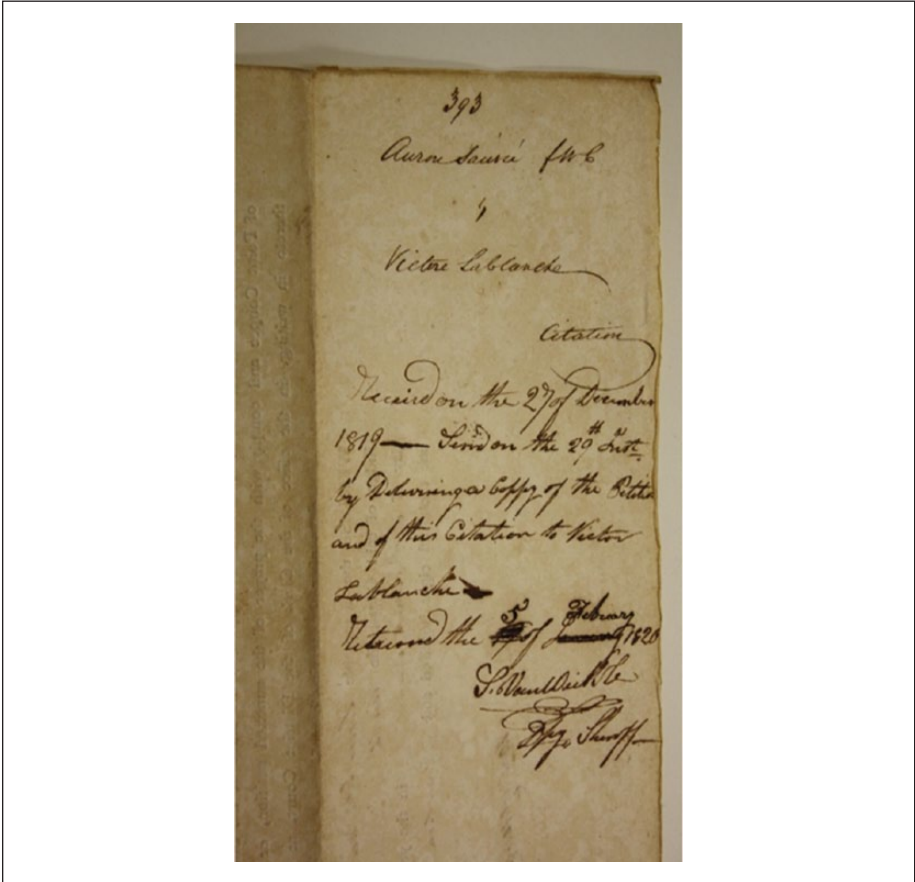 393
Aurore Sauvé fWC
v
Victore Lablanche
Citation
Receivd on the 27 of December
1819 — Servd on the 29th Inst
by Delivering a Coppy of the Petition
and of this Citation to Victor
Lablanche
Returned the 5 of February 1820
S. VanWickle
Dpy. Sheriff